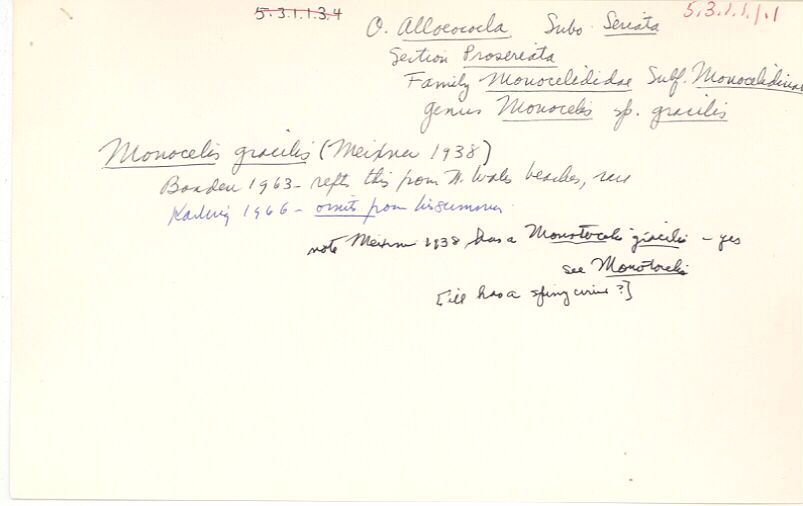 5.3.1.1.3.4
5.3.1.1.1.1
O. Alloeocoela Subo. Seriata
Section Proseriata
Family Monocelididae Subf. Monocelidinae
genus Monocelis sp. gracilis
Monocelis gracilis (Meixner 1938)
Boaden 1963 - repts this from N. Wales beaches,
Karling 1966 - omits from his summary
note Meixner 1938 has a Monotocelis gracilis - yes
see Monotocelis
[ill has a spiny cirrus ?]